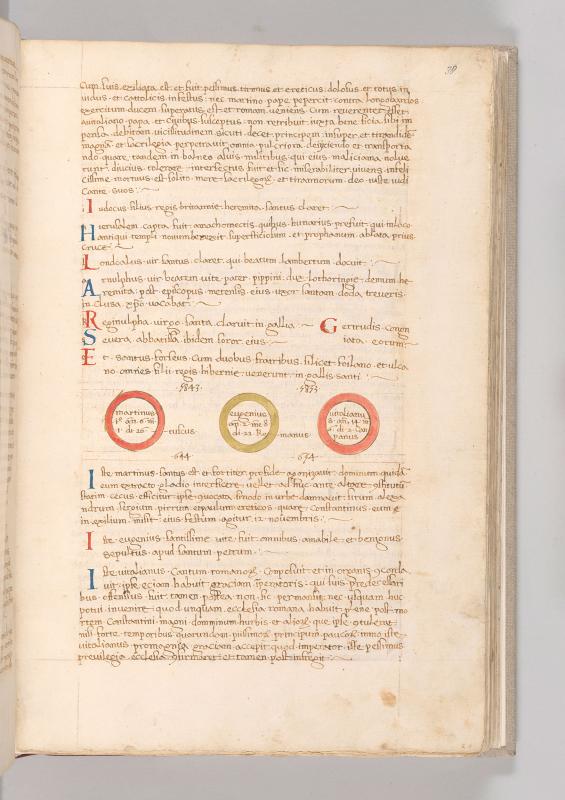 39
Cum suis exiliata est et fuit pessimus tirannus et ereticus dolosus et totus in
vidus et cattolicis infestus nec martino pape pepercit contra longobardos
exercitum ducem superatus est et romam veniens Cum reverenter esset
avitaliano papa et Civibus susceptus non retribuit iuxta bene ficia sibi im
pensa debitam vicissitudinem sicuti decet principem insuper et tirandides
magna et sacrilegia perpetravit omnia pulcriora deijciendo et transporta
ndo quare tandem in balneo a suis militibus qui eius maliciam nolue
runt diucius tolerare interfectus fuit et sic miserabiliter vivens infeli
cissime mortuus est solito more sacrilegorum et tirannorum deo iuste iudi
cante suos
Iudocus filius regis britannie heremita santus claret
Hierusalem capta fuit amachomectis quibus humarius prefuit qui in loco
antiqui templi novum erexit superstitiosum et prophanum ablata prius
cruce
Londoalus vir santus claret qui beatum lambertum docuit
Arnulphus vir beatem vite pater pippini dux lothoringie demum he
remita post episcopus metensis eius uxor santam doda treveris
in clusa xpo vacabat
Reginulpha virgo santa claruit in gallia
Severa abbatissa ibidem soror eius
Gertrudis Conon
iata eorum
Et santus forseus Cum duobus fratribus silicet foilano et ulta
no omnes filii regis hibernie venerunt in gallis santi
5843
5853
martinus
pº an 6 m
1 di 26
tuscus
eugenius
an 2 me 8
di 22 Ro
manus
vitalianus
S an 14 m
di 2 Can
panus
644
654
Iste martinus santus est et fortiter pro fide agonizavit dominum quidam
eum extracto gladio interficere vellet ad huc ante altare constitutum
statim cecus efficitur ipse quocata sinodo in urbe damnavit tirum alexa
ndrum sergium pirrum et paulum ereticos quare Constantinus eum
in exilium misit eius festum agitur 12 novembris
Iste eugenius santissime vite fuit omnibus amabile et benignus
sepultus apud santum petrum
Iste vitalianus Cantum romanorum Composuit et in organis concorda
vit ipse eciam habuit graciam imperatoris qui suis predecessori
bus offensivus fuit tamen postea non sic permansit nec usquam huc
potui invenire quod unquam ecclesia romana habuit plene post mo
rtem Constantini magni dominium hurbis et aliorum que ipse contulerat
nisi forte temporibus quorundam piissimorum principum paucorum immo iste
vitalianus pro magna graciam accepit quod imperator iste pessimus
previlegia ecclesia confirmaret et tamen post infregit